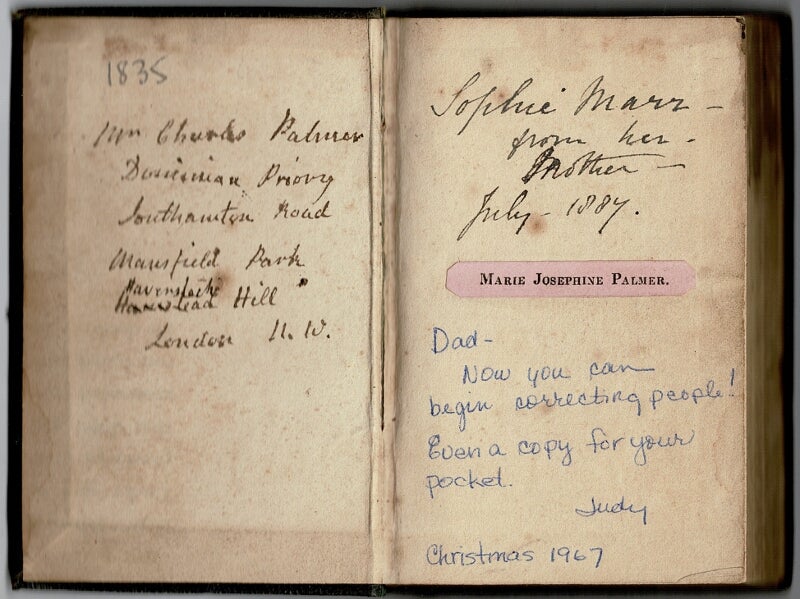 1835
Mr Charles Palmer
Dominican Priory
Southamton Road
Mansfield Park
Haverstock
Hill
London N. W.
Sophie Marr –
from her –
Mother –
July – 1887.
MARIE JOSEPHINE PALMER.
Dad–
Now you can
begin correcting people!
Even a copy for your
pocket.
Judy
Christmas 1967